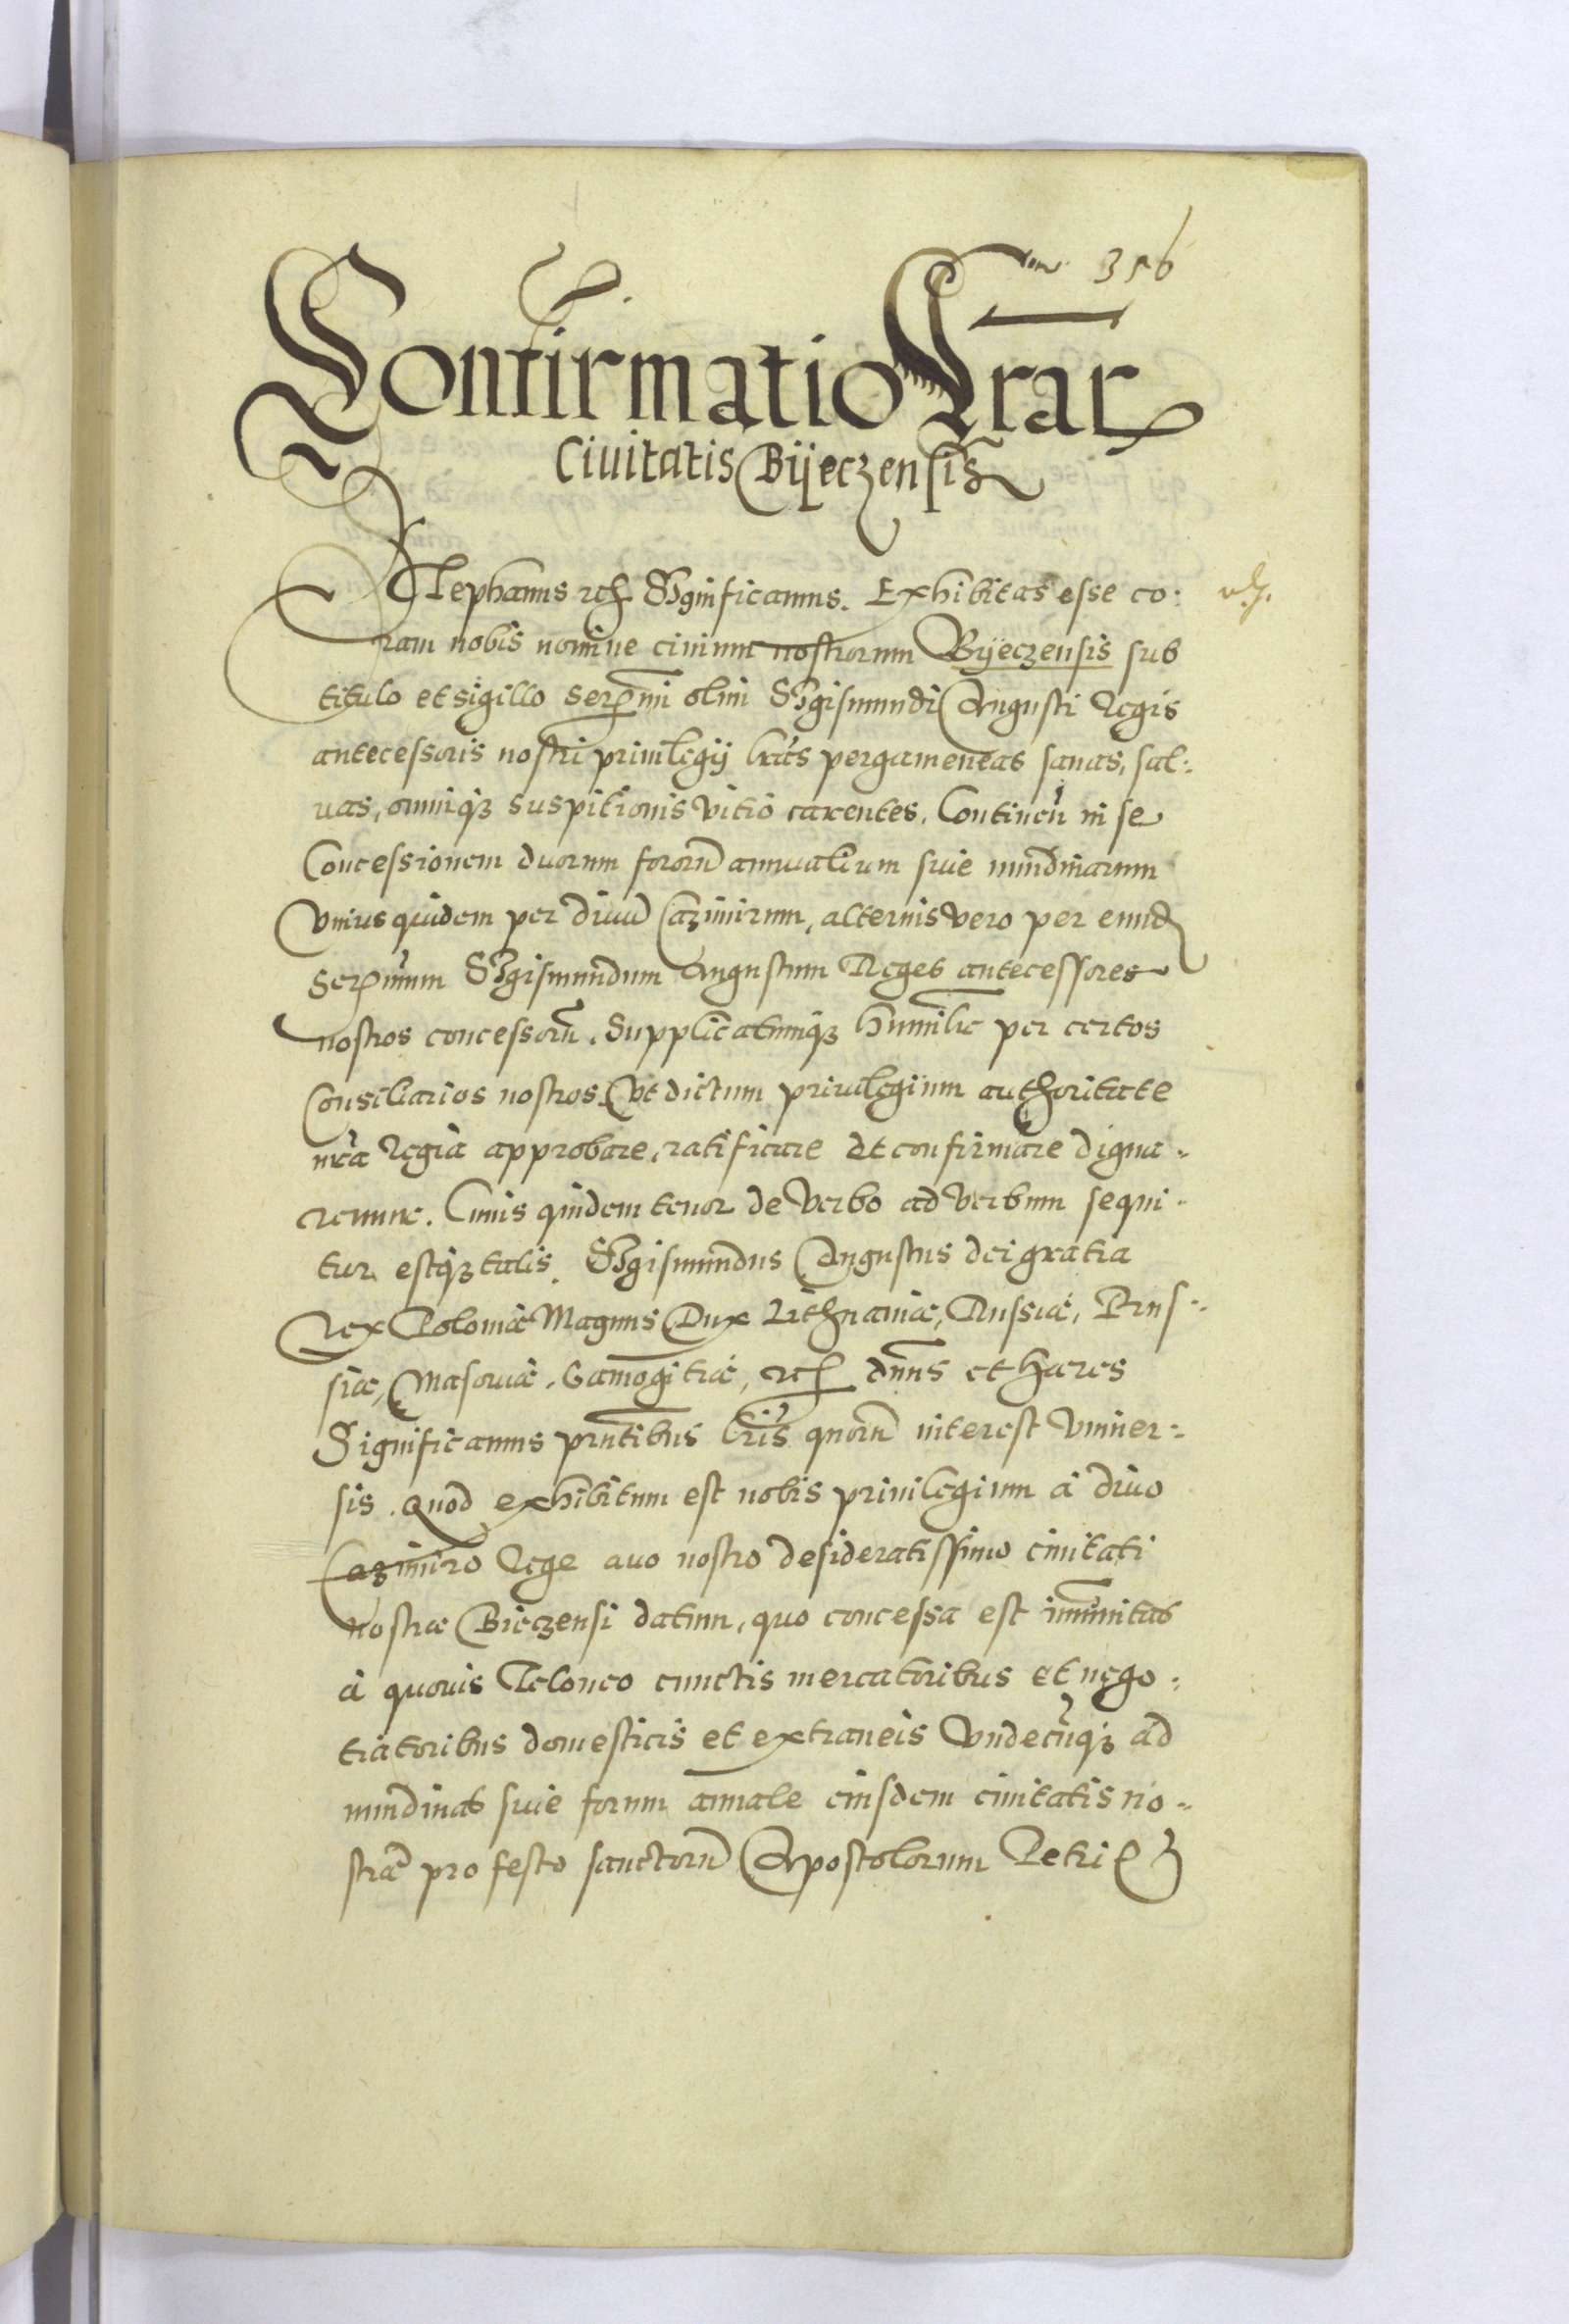 356
Confirmatio Lrar
Ciuitatis Bijeczensis
Stephanus etc. Significamus. Exhibitas esse co:
ram nobis nomine ciuium nostrorum Bijeczensis sub
titulo et sigillo Serenmi olim Sigismundi Augusti Regis
antecessoris nostri priuilegij lras pergameneas sanas, sal:
uas, omniq3 suspitionis vitio carentes. Continen in se
Concessionem duorum fororu annualium siue nundinarum
Vnius quidem per diuu Cazimirum, alterius vero per eund
Serenmum Sigismundum Augustum Reges antecessores
nostros concessoru. Supplicatumq3 humilie per certos
Consiliarios nostros Vt dictum priuilegium authoritate
nra Regia approbare, ratificare et confirmare digna:
remur. Cuius quidem tenor de Verbo ad Verbum sequi:
tur estq3 talis. Sigismundus Augustus dei gratia
Rex Poloniae Magnus Dux Lithuaniae, Russiae, Prus:
siae, Masouiae, Samogitiae, etc. dnns et Haeres
Significamus prntibus lris quoru interest Vniuer:
sis. Quod exhibitum est nobis priuilegium a diuo
Cazimiro Rege auo nostro desideratissimo ciuitati
nostrae Bieczensi datum, quo concessa est immunitas
a quouis Teloneo cunctis mercatoribus et nego:
tiatoribus domesticis et extraneis Vndecunq3 ad
nundinas siue forum annale eiusdem ciuitatis no:
strae pro festo sanctoru Apostolorum Petri et